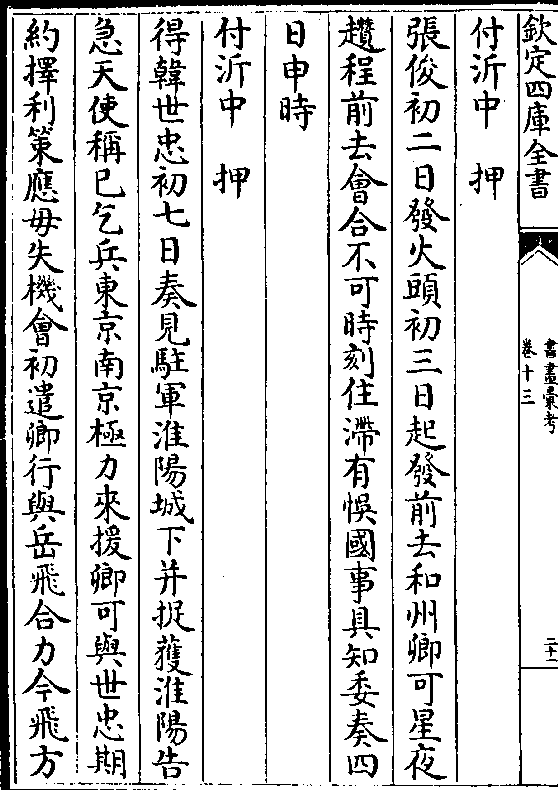 欽定四庫全書
書畫彙考
卷十三
二十一
付沂中　押
張俊初二日發火頭初三日起發前去和州卿可星夜
趲程前去會合不可時刻住滯有悞國事具知委奏四
日申時
付沂中　押
得韓世忠初七日奏見駐軍淮陽城下并捉獲淮陽告
急天使稱已乞兵東京南京極力來援卿可與世忠期
約擇利策應毋失機會初遣卿行與岳飛合力今飛方